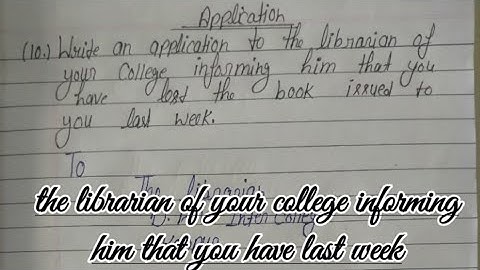 Application
(10.) Write an application to the librarian of
your College informing him that you
have lost the book issued to
you last week.
To
The librarian
the librarian of your college informing
him that you have last week